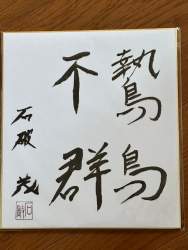 鷙鳥
不群
石破 茂